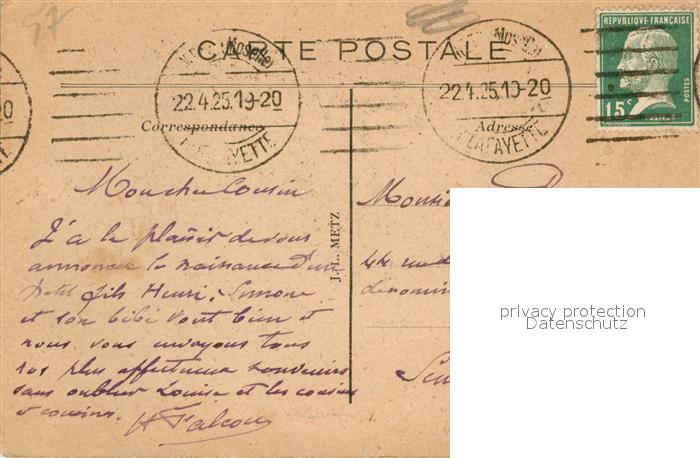 57
CARTE POSTALE
RÉPUBLIQUE FRANÇAISE
POSTES
15c
PASTEUR
METZ Moselle
22.4.25.19-20
LAFAYETTE
METZ Moselle
22.4.25.19-20
LAFAYETTE
Correspondance
Adresse
J.L. METZ
Mon cher Cousin
J'ai le plaisir de vous
annoncer la naissance d'un
petit fils Henri, Simone
et son bébé vont bien et
nous vous envoyons tous
nos plus affectueux souvenirs
sans oublier Louise et les cousins
et cousines.
H Falcou
Monsieur
44 rue d
Sen
privacy protection
Datenschutz